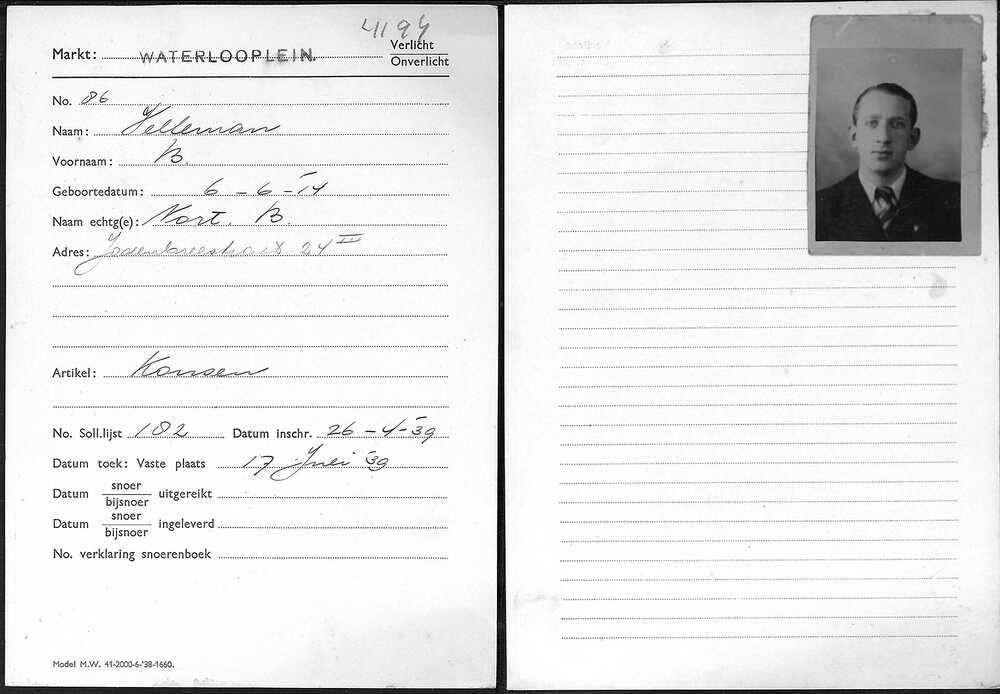 4194
Markt: WATERLOOPLEIN. Verlicht
Onverlicht
No. 86
Naam: Velleman
Voornaam: B.
Geboortedatum: 6-6-14
Naam echtg(e): Nort. B.
Adres: Jodenbreestraat 24 III
Artikel: Kousen
No. Soll.lijst 182 Datum inschr. 26-4-39
Datum toek: Vaste plaats 17 Juli '39
Datum snoer/bijsnoer uitgereikt
Datum snoer/bijsnoer ingeleverd
No. verklaring snoerenboek
Model M.W. 41-2000-6-'38-1660.